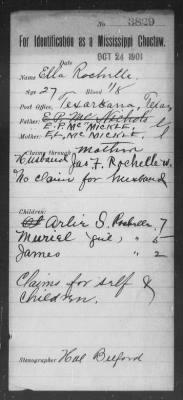 No 3829
For Identification as a Mississippi Choctaw.
OCT 24 1901
Date
Name Ella Rochelle.
Age 27 Blood 1/8
Post Office, Texarkana, Texas
Father: E.P. McNichols
E.P. MCMICKLE.
Mother: F.L. MCMICKLE.
Claiming through mother
Husband Jas F. Rochelle w.
No claim for husband
Children:
Arlie S. Rochelle. 7
Muriel (girl) " 5
James " 2
Claims for self &
children.
Stenographer Hal Belford